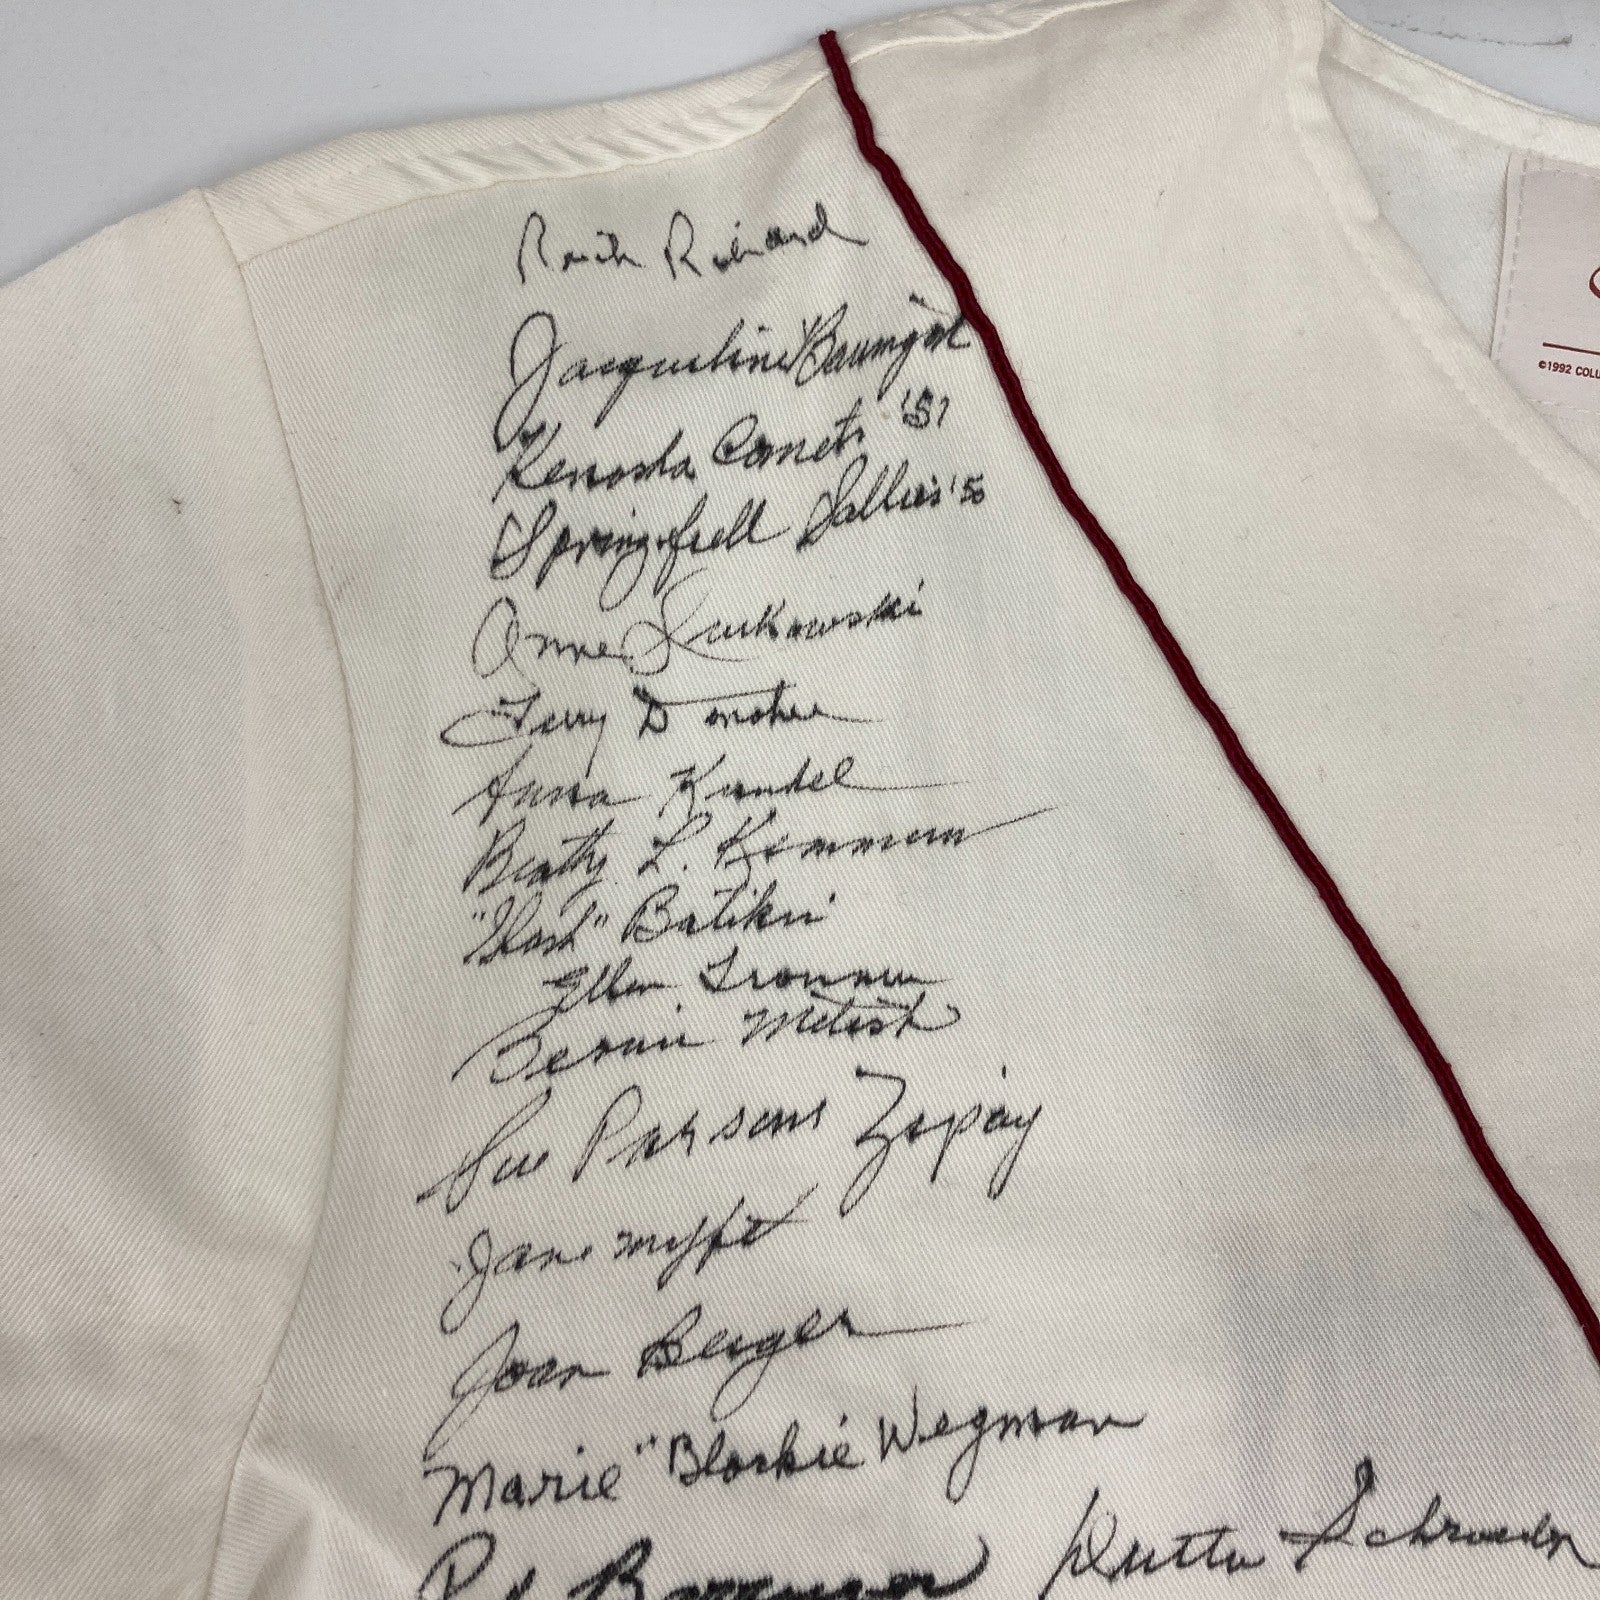 Ruth Richard
©1992 COLU
Jacqueline Baumgart
Kenosha Comets '51
Springfield Sallies '50
Anne
Terry Donahue
Anna Kunkel
Betty L. Kemmerer
"Slash" Batikis
Ellen Tronnier
Bernie Metesh
Sue Parsons Zipay
Jane Moffet
Joan Berger
Marie "Blackie Wegman
Dutto Schroeder